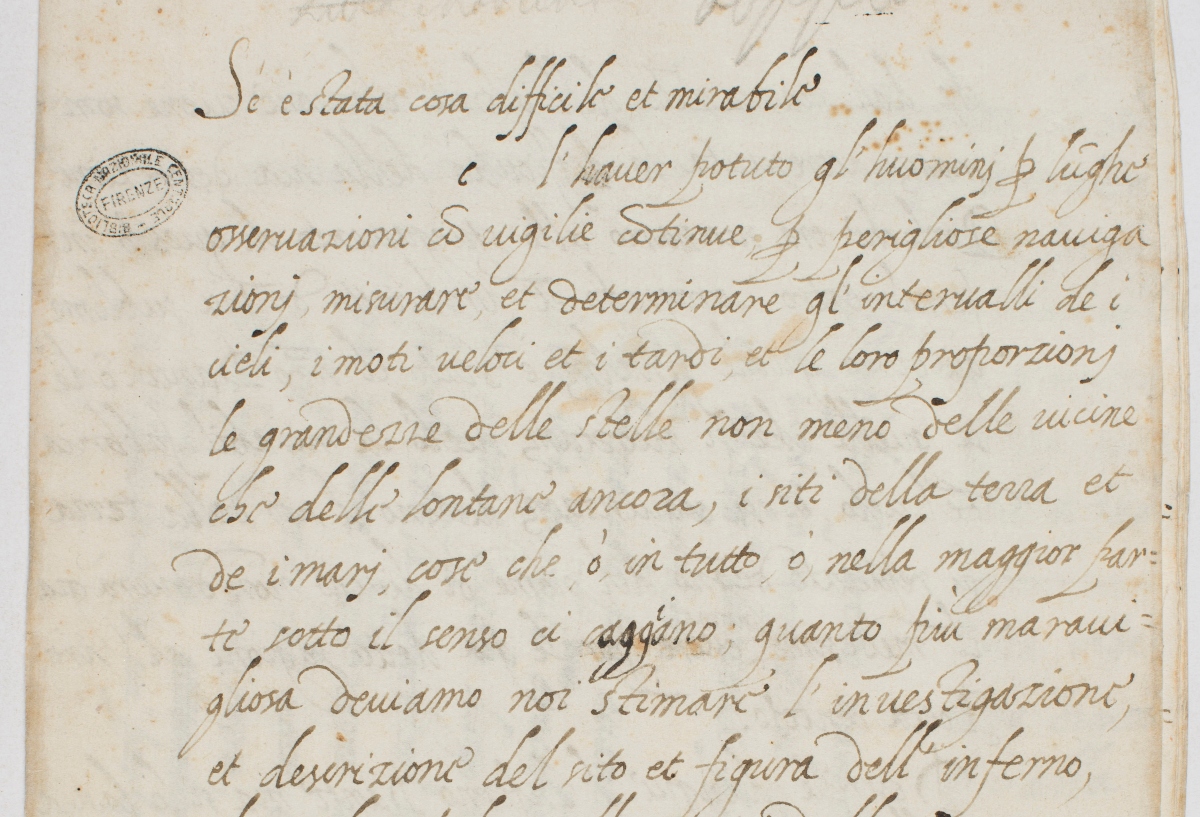 Se è stata cosa difficile et mirabile
l'haver potuto gl'huominj ꝑ lūghe
osservazioni cō vigilie cōtinue, ꝑ perigliose naviga
zionj, misurare, et determinare gl'intervalli de i
cieli, i moti veloci et i tardi, et le loro proporzionj
le grandezze delle stelle non meno delle vicine
che delle lontane ancora, i siti della terra et
de i marj, cose che, ò, in tutto, ò, nella maggior par=
te sotto il senso ci caggiano: quanto più maravi=
gliosa deviamo noi stimare l'investigazione,
et descrizione del sito et figura dell'inferno,
BIBLIOTECA NAZIONALE CENTRALE
FIRENZE